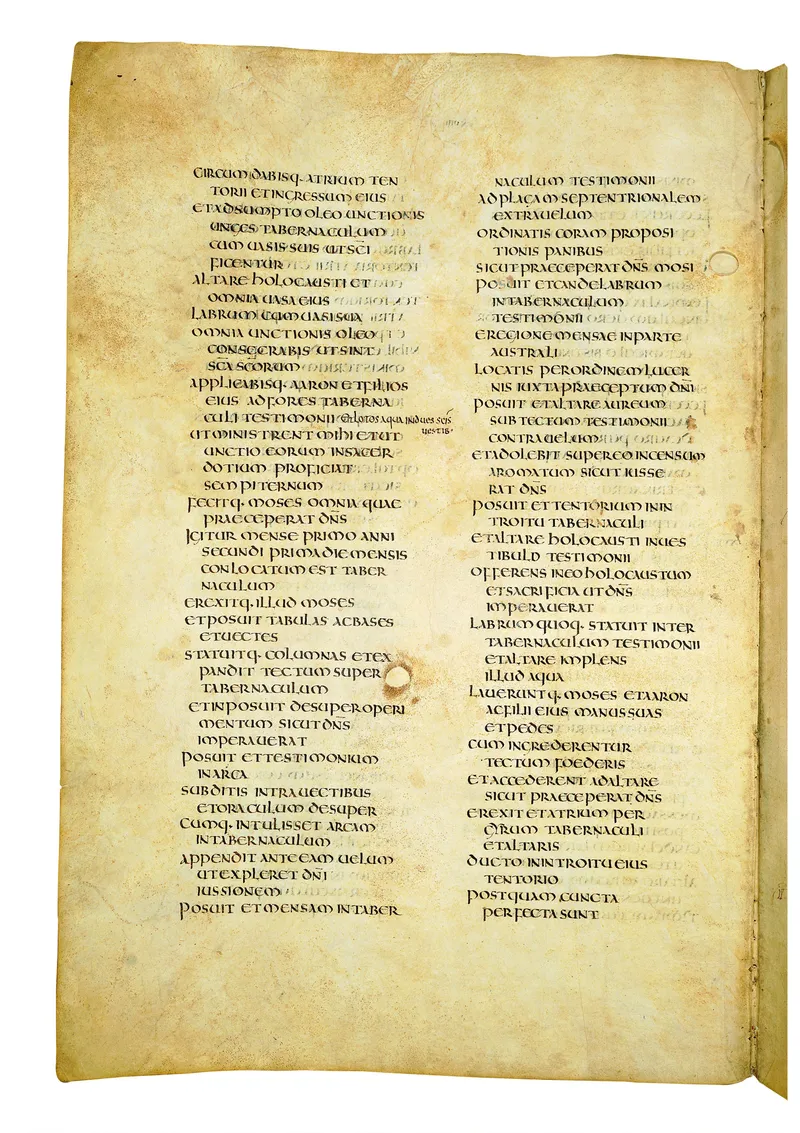 CIRCUMDABISQ· ATRIUM TEN
TORII ET INGRESSUM EIUS
ET ADSUMPTO OLEO UNCTIONIS
UNGES TABERNACULUM
CUM UASIS SUIS UT SC̅I
FICENTUR
ALTARE HOLOCAUSTI ET
OMNIA UASA EIUS
LABRUM CUM UASI SUA
OMNIA UNCTIONIS OLEO
CONSECRABIS UT SINT
SC̅A SC̅ORUM
APPLICABISQ· AARON ET FILIOS
EIUS AD FORES TABERNA
CULI TESTIMONII et lotos aqua indues scis
uestib·
UT MINISTRENT MIHI ET UT
UNCTIO EORUM IN SACER
DOTIUM PROFICIAT
SEMPITERNUM
FECITQ· MOSES OMNIA QUAE
PRAECEPERAT DN̅S
IGITUR MENSE PRIMO ANNI
SECUNDI PRIMA DIE MENSIS
CONLOCATUM EST TABER
NACULUM
EREXITQ· ILLUD MOSES
ET POSUIT TABULAS AC BASES
ET UECTES
STATUITQ· COLUMNAS ET EX
PANDIT TECTUM SUPER
TABERNACULUM
ET INPOSUIT DESUPER OPERI
MENTUM SICUT DN̅S
IMPERAUERAT
POSUIT ET TESTIMONIUM
IN ARCA
SUBDITIS INTRA UECTIBUS
ET ORACULUM DESUPER
CUMQ· INTULISSET ARCAM
IN TABERNACULUM
APPENDIT ANTE EAM UELUM
UT EXPLERET DN̅I
IUSSIONEM
POSUIT ET MENSAM IN TABER
NACULUM TESTIMONII
AD PLAGAM SEPTENTRIONALEM
EXTRA UELUM
ORDINATIS CORAM PROPOSI
TIONIS PANIBUS
SICUT PRAECEPERAT DN̅S MOSI
POSUIT ET CANDELABRUM
IN TABERNACULUM
TESTIMONII
E REGIONE MENSAE IN PARTE
AUSTRALI
LOCATIS PER ORDINEM LUCER
NIS IUXTA PRAECEPTUM DN̅I
POSUIT ET ALTARE AUREUM
SUB TECTUM TESTIMONII
CONTRA UELUM
ET ADOLEBIT SUPER EO INCENSUM
AROMATUM SICUT IUSSE
RAT DN̅S
POSUIT ET TENTORIUM IN IN
TROITU TABERNACULI
ET ALTARE HOLOCAUSTI IN UES
TIBULO TESTIMONII
OFFERENS IN EO HOLOCAUSTUM
ET SACRIFICIA UT DN̅S
IMPERAUERAT
LABRUM QUOQ· STATUIT INTER
TABERNACULUM TESTIMONII
ET ALTARE IMPLENS
ILLUD AQUA
LAUERUNTQ· MOSES ET AARON
AC FILII EIUS MANUS SUAS
ET PEDES
CUM INGREDERENTUR
TECTUM FOEDERIS
ET ACCEDERENT AD ALTARE
SICUT PRAECEPERAT DN̅S
EREXIT ET ATRIUM PER
GYRUM TABERNACULI
ET ALTARIS
DUCTO IN INTROITU EIUS
TENTORIO
POSTQUAM CUNCTA
PERFECTA SUNT